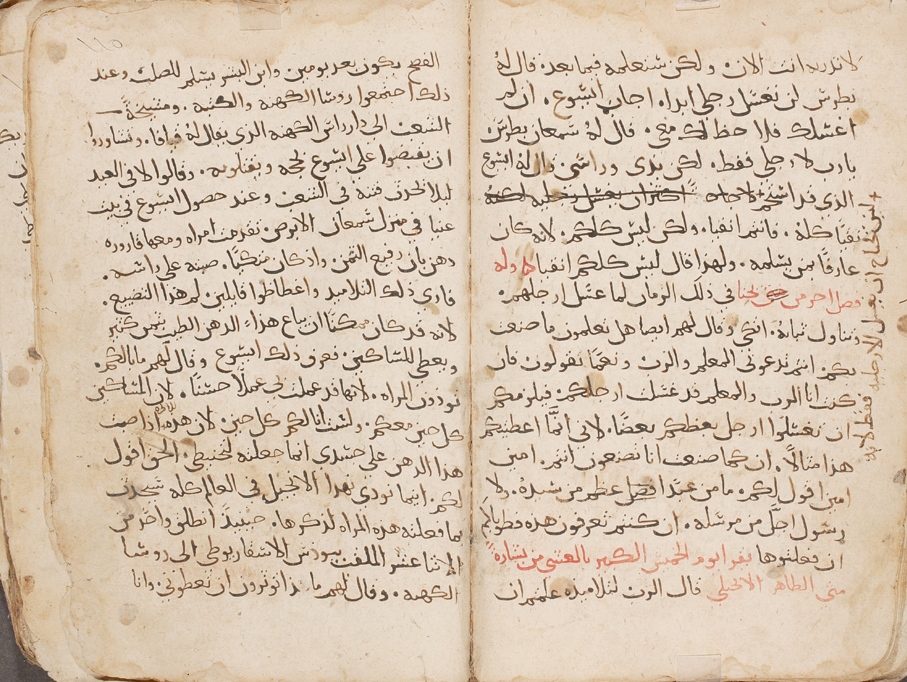 لا تدريه انت الان. ولكن ستعلمه فيما بعد. قال له
بطرس لن تغسل رجلي ابدا. اجاب ايسوع. ان لم
اغسلك فلا حظ لك معي. قال له سمعان بطرس
يارب لا رجلي فقط. لكن يدي وراسي. قال له ايسوع
الذي قد استحم
نقيا كله. فانتم انقيا. ولكن ليس كلكم. لانه كان
عارفا بمن يسلمه. ولهذا قال ليس كلكم انقيا
فصل اخر من يحنا في ذلك الزمان لما غسل ارجلهم.
وتناول ثيابه. اتكى وقال لهم ايضا هل تعلمون ما صنعت
بكم. انتم تدعوني المعلم والرب. ونعما تقولون فان
كنت انا الرب والمعلم قد غسلت ارجلكم. فيلزمكم
ان تغسلوا ارجل بعضكم بعضا. لاني انما اعطيتكم
هذا مثالا. ان كما صنعت انا تصنعون انتم. امين
امين اقول لكم. ما من عبدا افضل عظم من سيده. ولا
رسول اجل من مرسله. ان كنتم تعرفون هذه فطوباكم
ان فعلتموها يقرا يوم الخميس الكبير بالعشي من بشارة
متى الطاهر الانجيلي قال الرب لتلاميذه علمتم ان
الفصح يكون بعد يومين. وابن البشر يسلم للصلب. وعند
ذلك اجتمعوا روسا الكهنه والكتبه. ومشيخة
الشعب الى دار راس الكهنه الذي يقال له قيافا. وتشاوروا
ان يقبضوا على ايسوع بحيله ويقتلونه. وقالوا لا في العيد
ليلا تحدث فتنه في الشعب وعند حصول ايسوع في بيت
عنيا في منزل سمعان الابرص. تقدمت امراه ومعها قاروره
دهن بان رفيع الثمن واذ كان متكيا. صبته على راسه.
فلما راى ذلك التلاميذ واغتاظوا قايلين لم هذا التضييع.
لانه قد كان ممكنا ان يباع هذا الدهن الطيب بثمن كثير
ويعطى للمساكين. فعرف ذلك ايسوع وقال لهم ما بالكم.
توذون المراه. لانها قد عملت بي عملا حسنا. لان المساكين
كل حين معكم. ولست انا لكم كل حين. لان هذه اذا صبت
هذا الدهن على جسدي انما جعلته لتحنيطي. الحق اقول
لكم. اينما نودي بهذا الانجيل في العالم كله سيحدث
بما فعلته هذه المراه لذكرها. حينيذ انطلق واحد من
الاثنا عشر الملقب يهودس الاسخاريوطي الى روسا
الكهنه. وقال لهم ماذا توثرون ان تعطوني. وانا